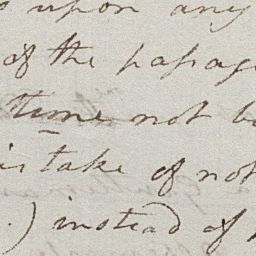 upon any
of the passag
time not b
is take of not
.) instead of